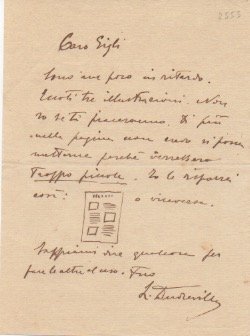 2555
Caro Gigli
Sono un poco in ritardo.
Eccoti tre illustrazioni. Non
so se ti piaceranno. Di più
nella pagina non credo si possa
metterne perché verrebbero
troppo piccole. Io le disporrei
così: o viceversa.
Sappimi dire qualcosa per
fare le altre al caso. Tuo
L. Dudreville